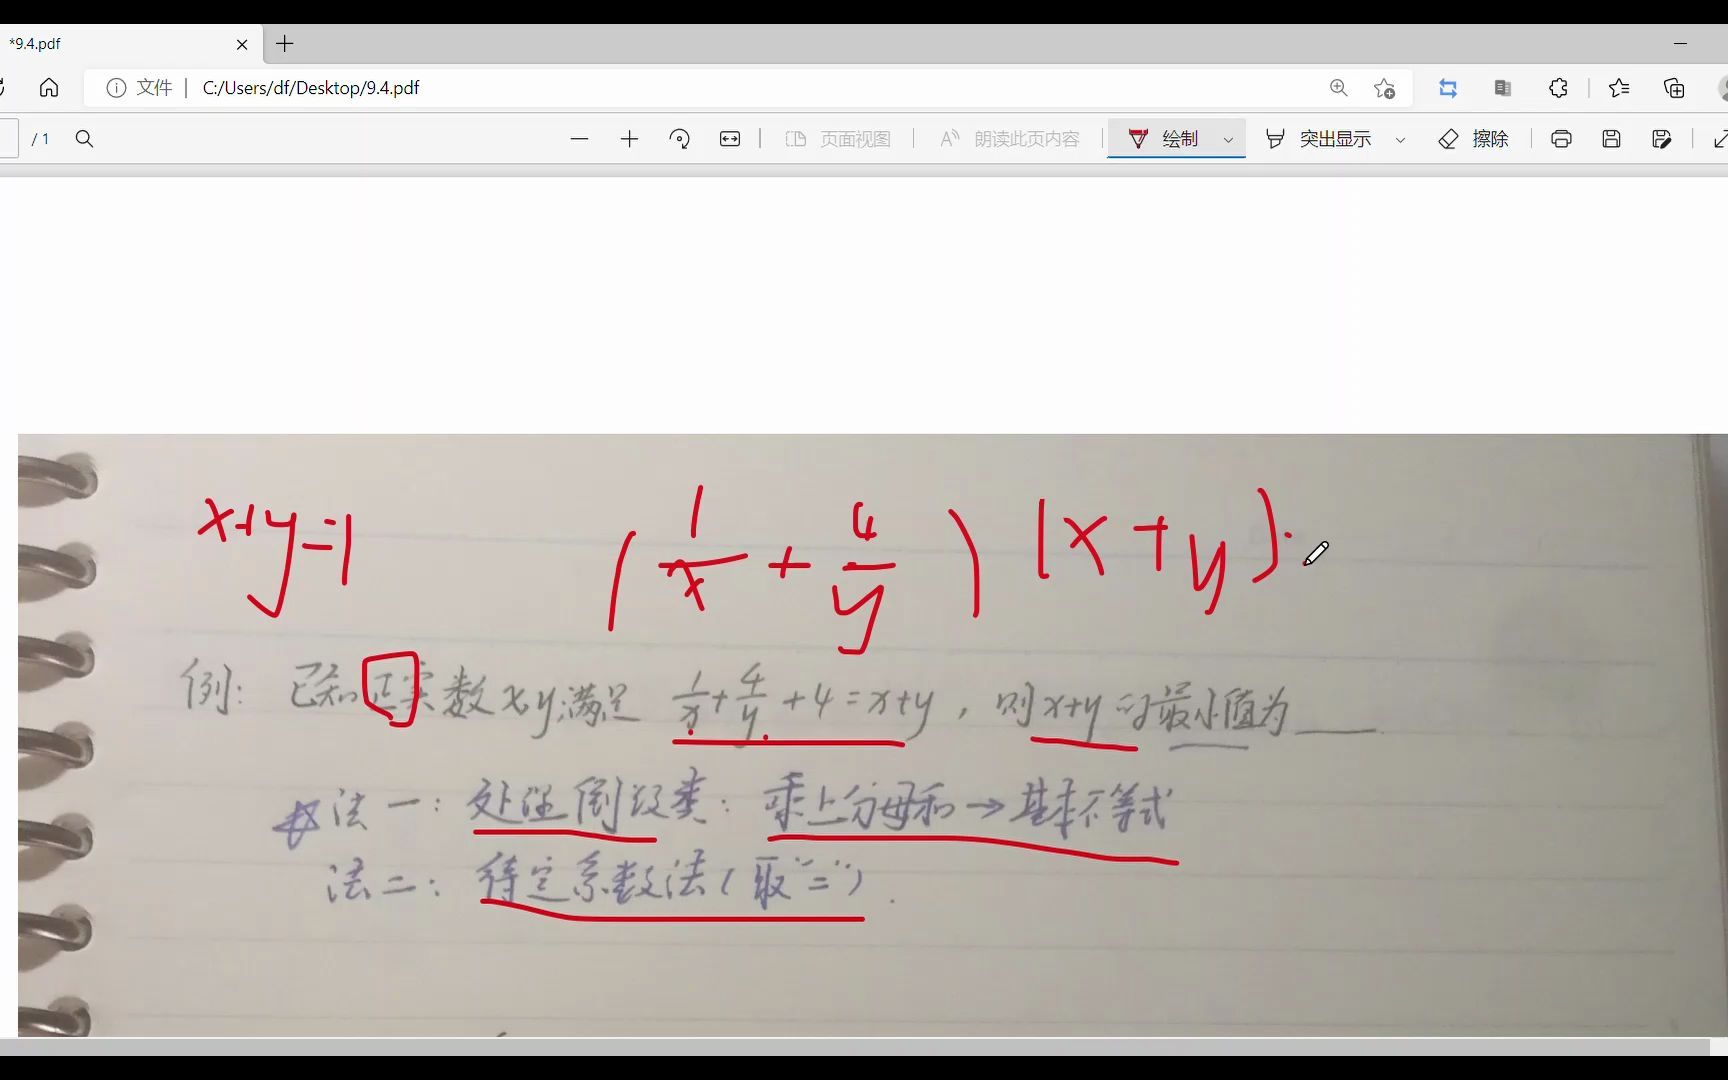 *9.4.pdf
文件 | C:/Users/df/Desktop/9.4.pdf
/ 1 页面视图 朗读此页内容 绘制 突出显示 擦除
x+y=1 (1/x + 4/y) (x+y)·
例: 已知正实数x,y满足 1/x+4/y+4=x+y, 则x+y的最小值为____.
法一: 处理倒数类: 乘上分母和→基本不等式
法二: 待定系数法(取“=”).